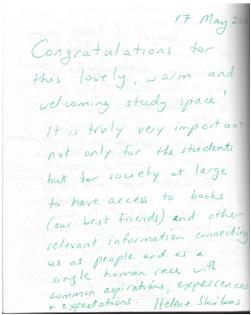 17 May
Congratulations for
this lovely, warm and
welcoming study space!
It is truly very important
not only for the students
but for society at large
to have access to books
(our best friends) and other
relevant information connecting
us as people and as a
single human race with
common aspirations, experiences
& expectations. Helena